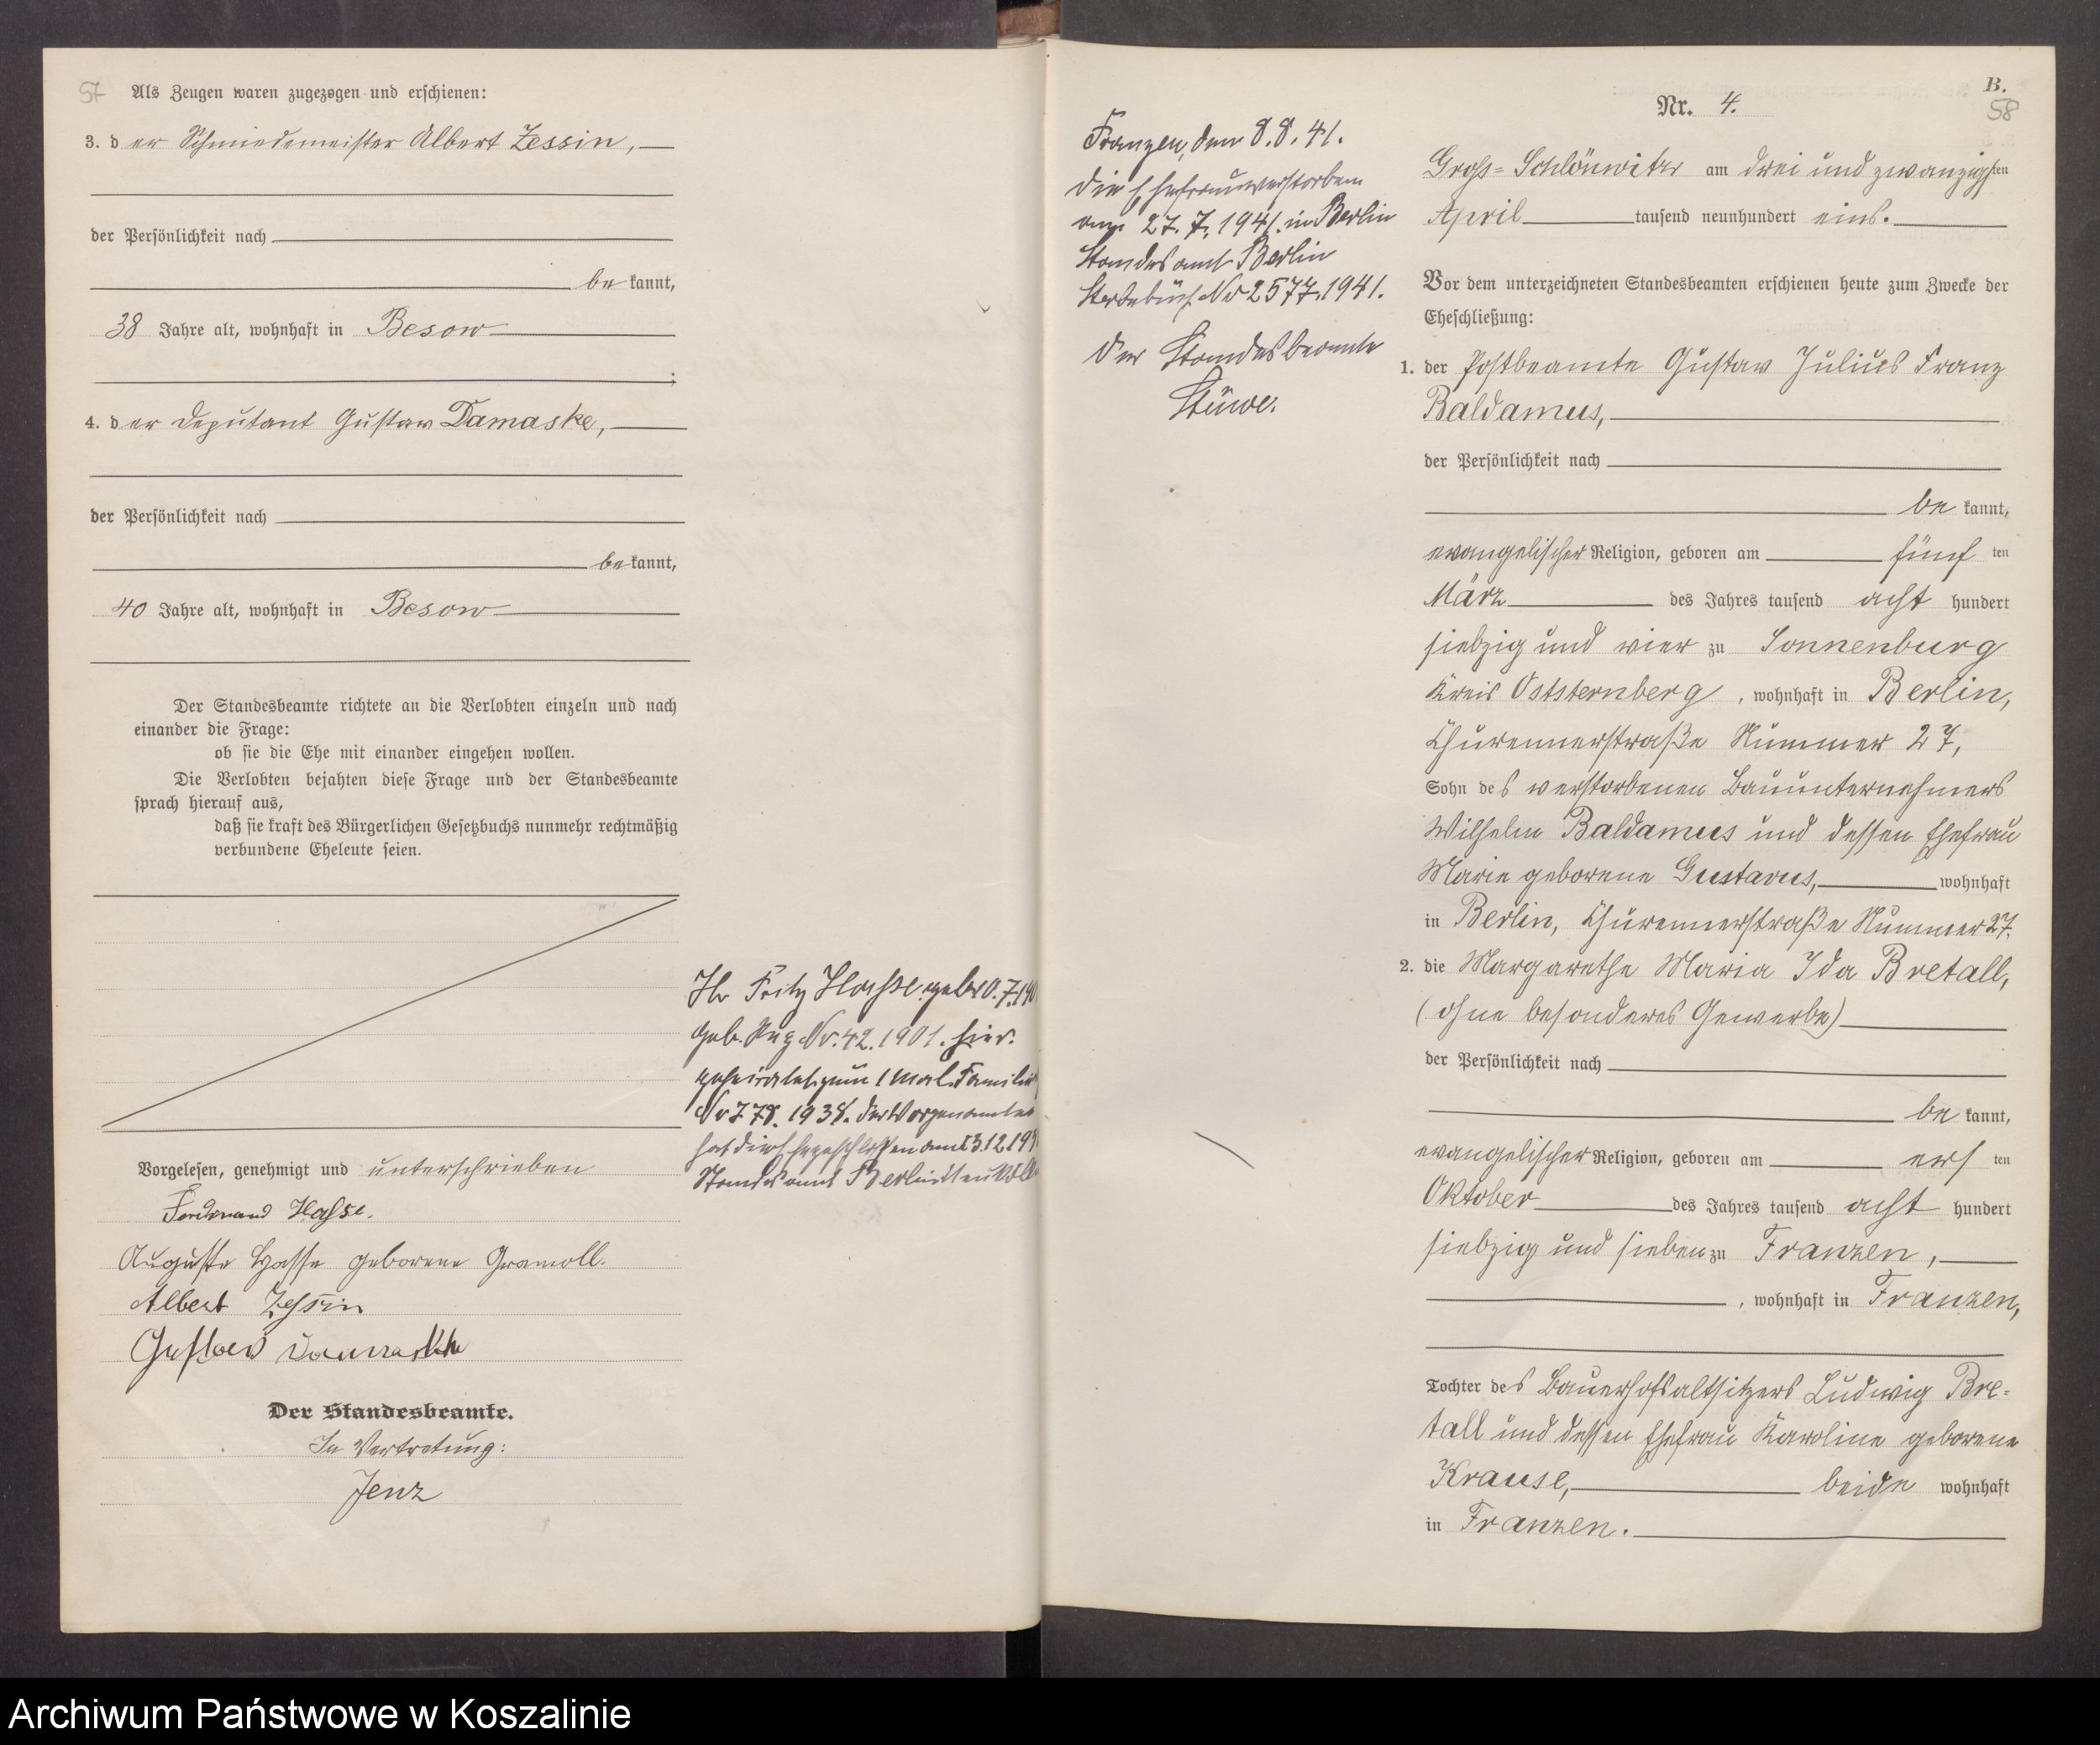 57
Als Zeugen waren zugezogen und erschienen:
3. der Schmiedemeister Albert Zessin,
der Persönlichkeit nach
be kannt,
38 Jahre alt, wohnhaft in Besow
;
4. der Deputant Gustav Damaske,
der Persönlichkeit nach
be kannt,
40 Jahre alt, wohnhaft in Besow
Der Standesbeamte richtete an die Verlobten einzeln und nach
einander die Frage:
ob sie die Ehe mit einander eingehen wollen.
Die Verlobten bejahten diese Frage und der Standesbeamte
sprach hierauf aus,
daß sie kraft des Bürgerlichen Gesetzbuchs nunmehr rechtmäßig
verbundene Eheleute seien.
Vorgelesen, genehmigt und unterschrieben
Ferdinand Hasse.
Auguste Hasse geborene Gramoll.
Albert Zessin
Gustav Damaske
Der Standesbeamte.
In Vertretung:
Jenz
Fritz Hasse geb. 10.7.
Geb. Reg Nr. 42. 1901. hier.
geheiratet zum 1 mal. Famili
Nr 778. 1938. Der Vorgenannte
hat die Ehe geschlossen am 3.12.19
Standesamt Berlin
B.
58
Nr. 4.
Franzen, den 8.8.41.
Die Ehefrau verstorben
am 27.7.1941. in Berlin
Standesamt Berlin
Sterbebuch Nr 2577.1941.
Der Standesbeamte
Stüwe.
Gross-Schlönwitz am drei und zwanzigsten
April tausend neunhundert eins.
Vor dem unterzeichneten Standesbeamten erschienen heute zum Zwecke der
Eheschließung:
1. der Postbeamte Gustav Julius Franz
Baldamus,
der Persönlichkeit nach
be kannt,
evangelischer Religion, geboren am fünf ten
März des Jahres tausend acht hundert
siebzig und vier zu Sonnenburg
Kreis Oststernberg, wohnhaft in Berlin,
Nummer 27,
Sohn des verstorbenen Bauunternehmers
Wilhelm Baldamus und dessen Ehefrau
Marie geborene Gustavus, wohnhaft
in Berlin, Nummer 27.
2. die Margarethe Maria Ida Bretall,
(ohne besonderes Gewerbe)
der Persönlichkeit nach
be kannt,
evangelischer Religion, geboren am ers ten
Oktober des Jahres tausend acht hundert
siebzig und sieben zu Franzen,
, wohnhaft in Franzen,
Tochter des Bauerhofsaltsitzers Ludwig Bre-
tall und dessen Ehefrau Karoline geborene
Krause, beide wohnhaft
in Franzen.
Archiwum Państwowe w Koszalinie